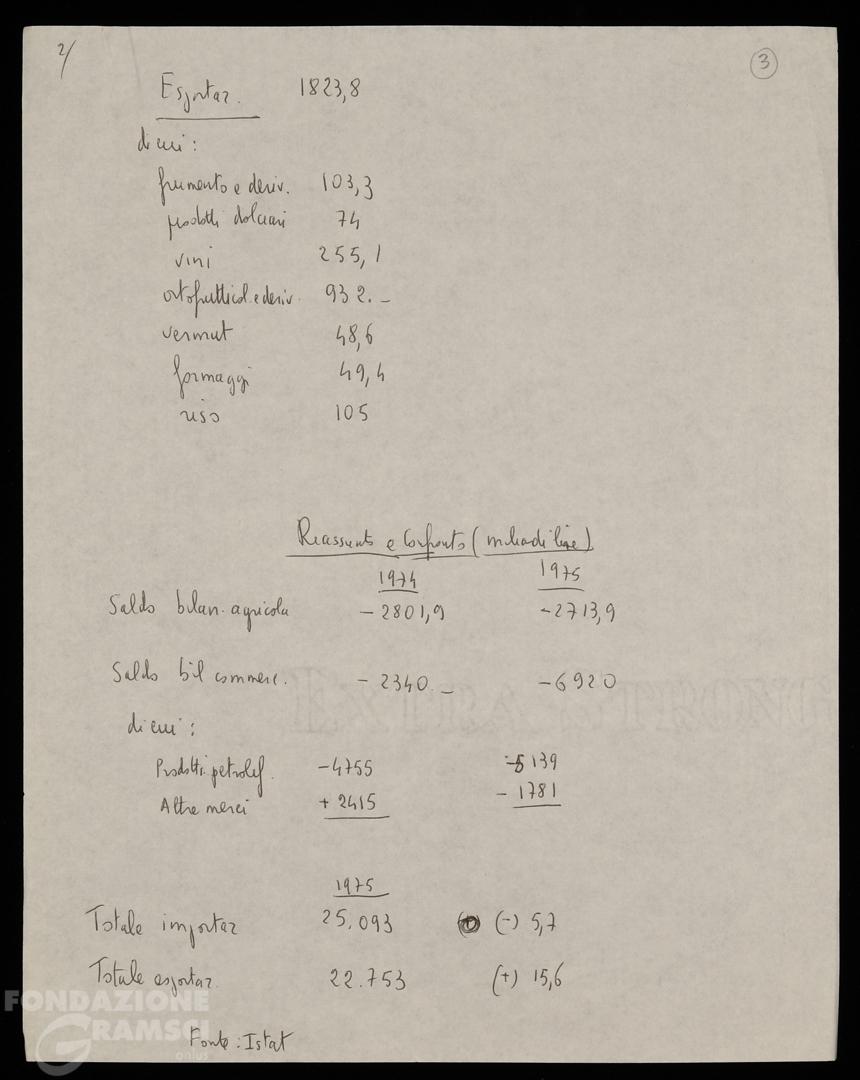 2/
3
Esportaz. 1823,8
di cui:
frumento e deriv. 103,3
prodotti dolciari 74
vini 255,1
ortofrutticol. e deriv. 932.-
vermut 48,6
formaggi 49,4
riso 105
Riassunto e Confronto (miliardi lire)
1974 1975
Saldo bilan. agricola -2801,9 -2713,9
Saldo bil commerc. -2340.- -6920
di cui:
Prodotti petrolif. -4755 -5139
Altre merci +2415 -1781
1975
Totale importaz 25.093 (-) 5,7
Totale esportaz. 22.753 (+) 15,6
Fonte: Istat
FONDAZIONE
GRAMSCI
onlus